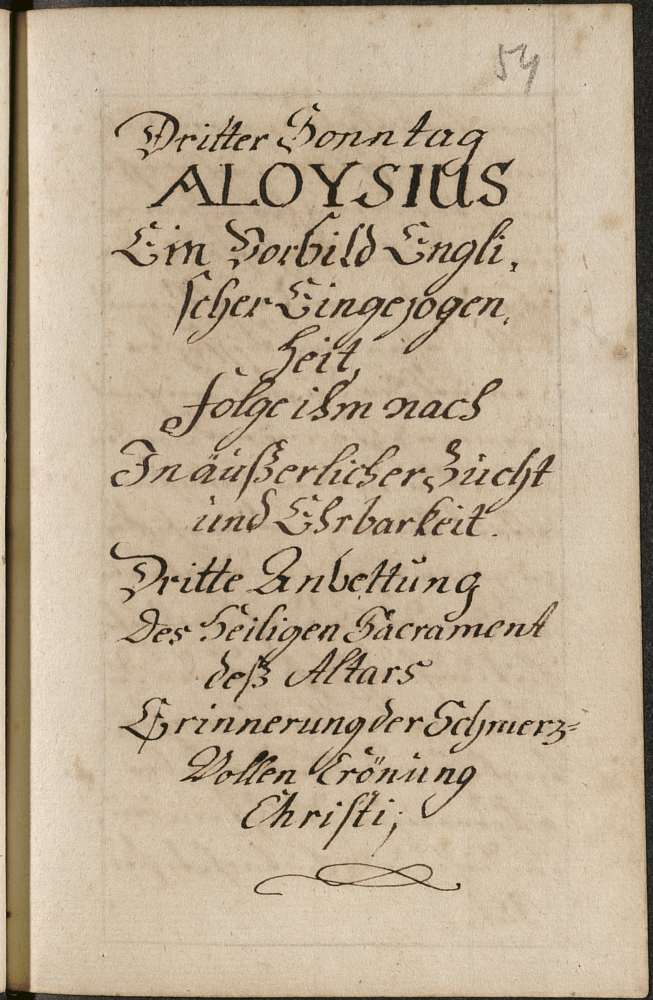 54
Dritter Sonntag
ALOYSIUS
Ein Vorbild Engli,
scher Eingezogen,
heit,
folge ihm nach
In äußerlicher Zücht
und Ehrbarkeit.
Dritte Anbettung
Des Heiligen Sacrament
deß Altars
Erinnerung der Schmerz=
Vollen Crönung
Christi,